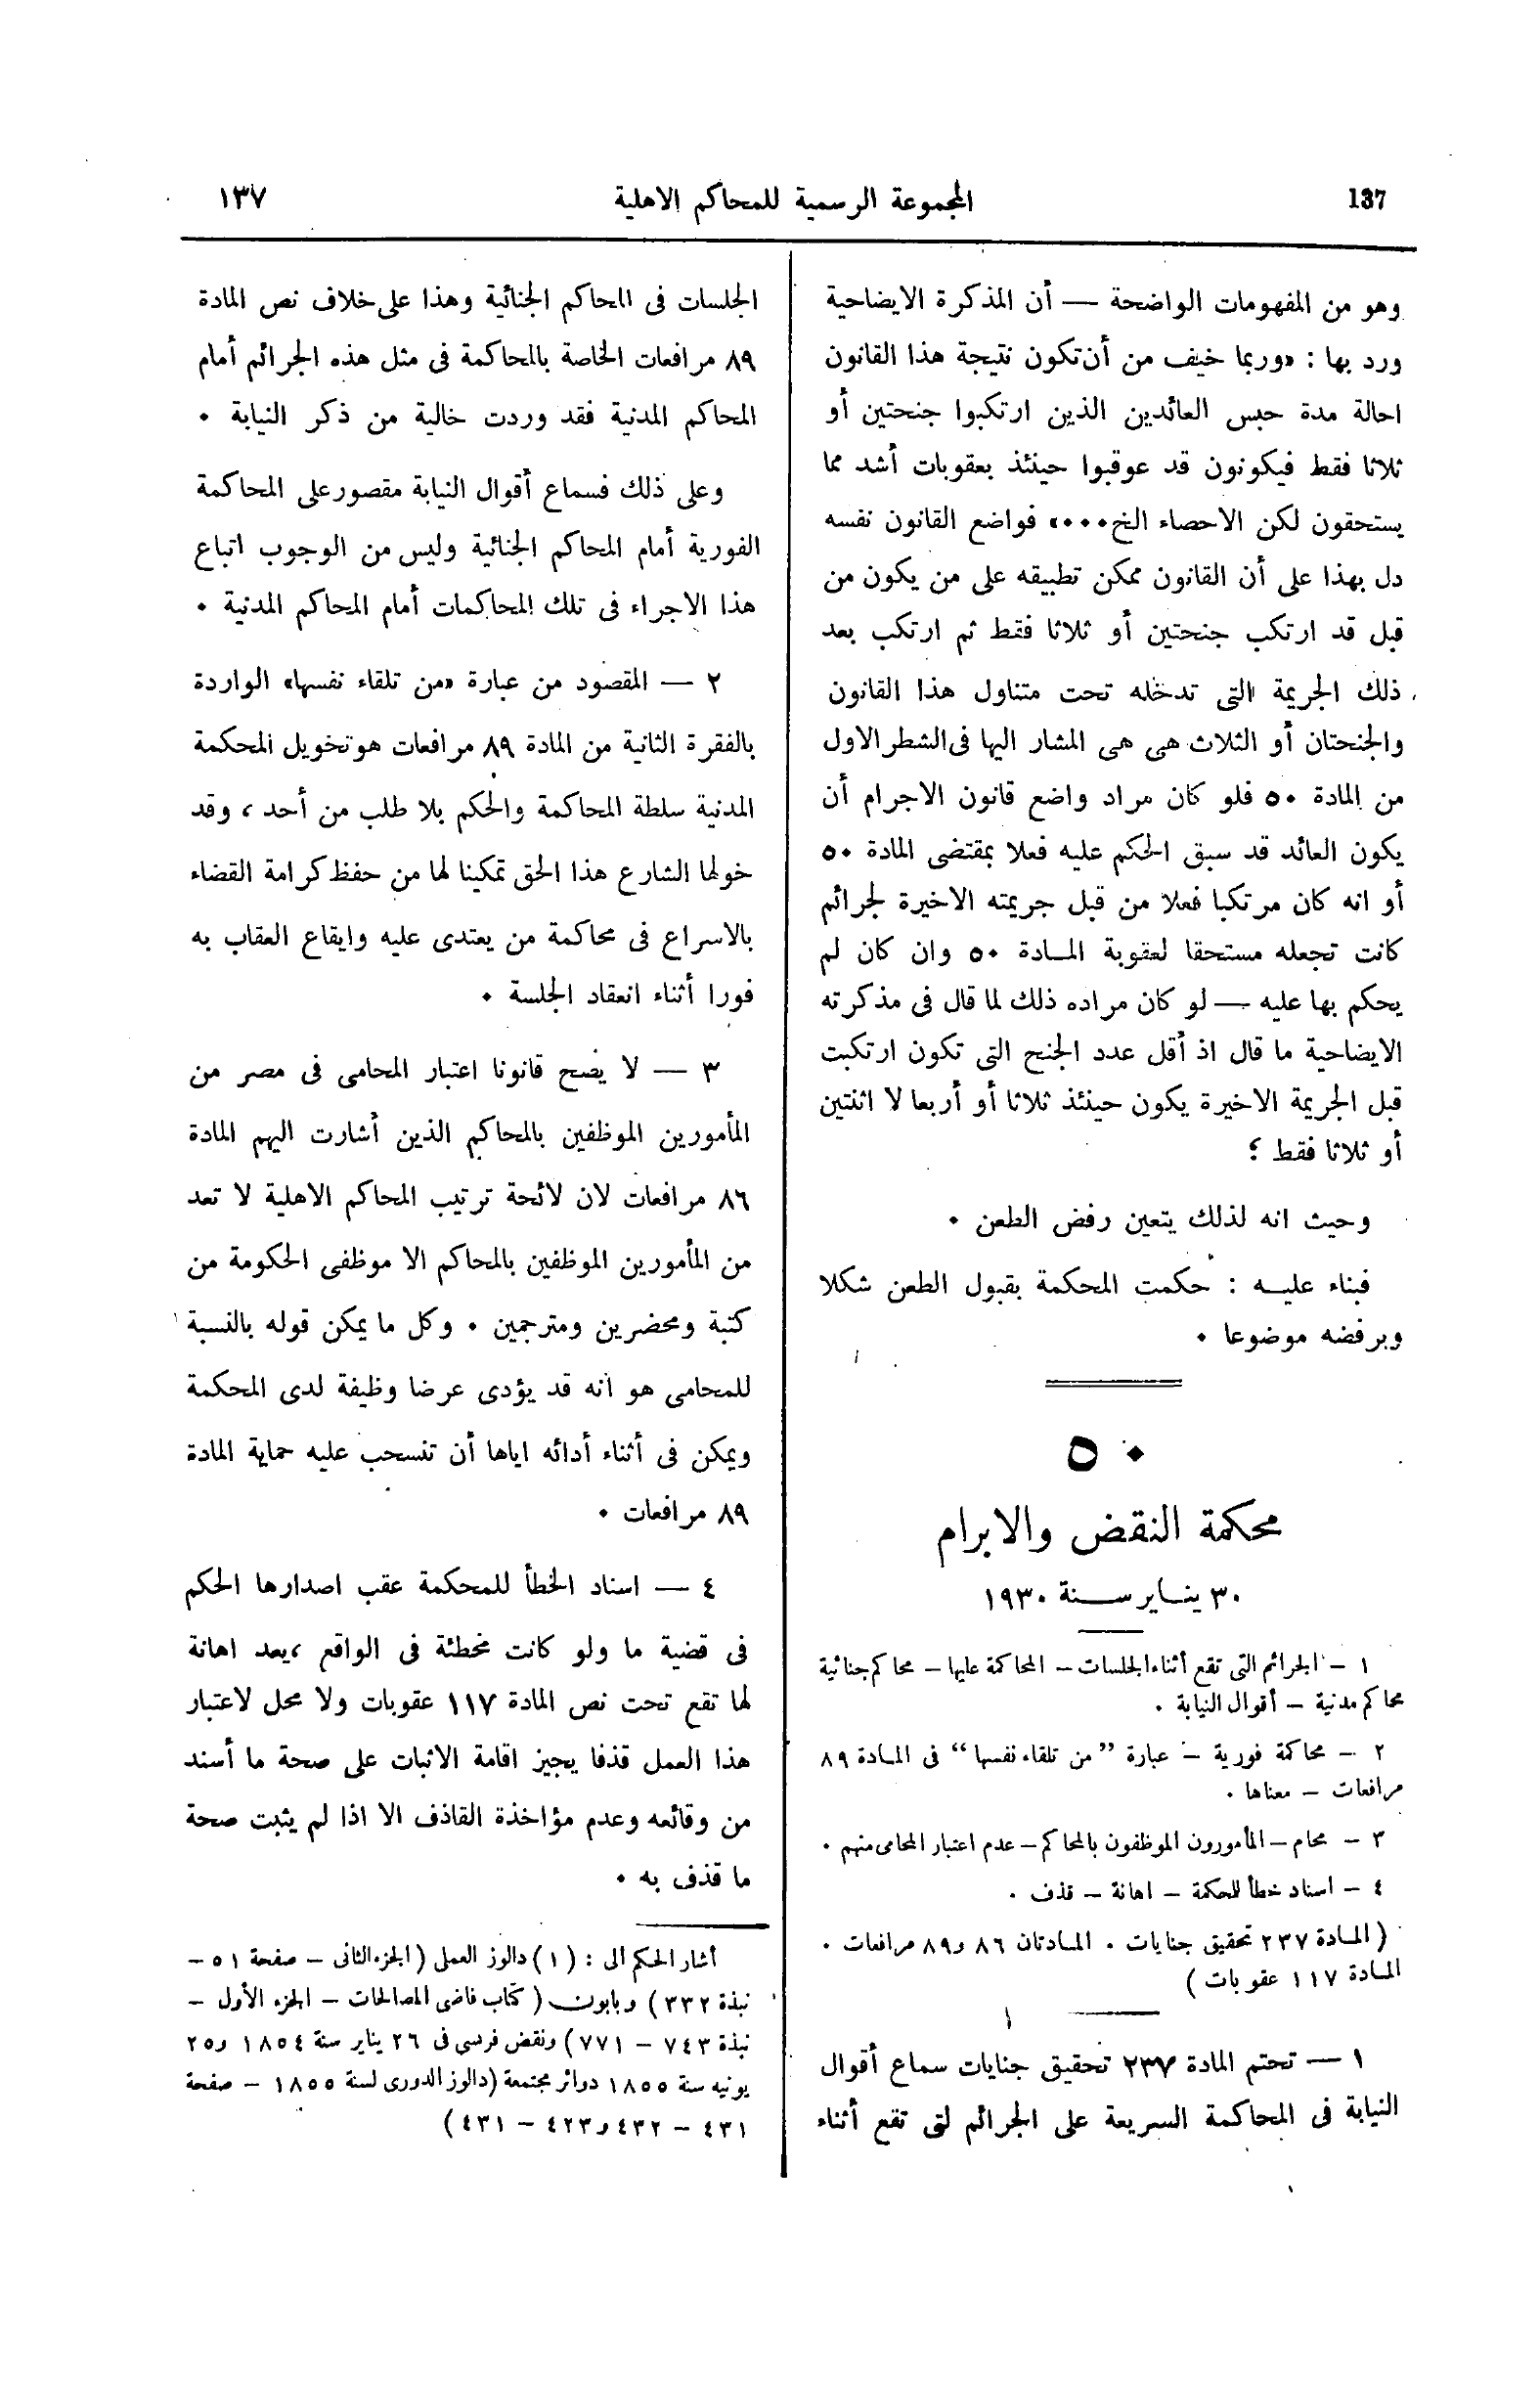 137
المجموعة الرسمية للمحاكم الاهلية
١٣٧
وهو من المفهومات الواضحة — أن المذكرة الايضاحية
ورد بها : «وربما خيف من أن تكون نتيجة هذا القانون
احالة مدة حبس العائدين الذين ارتكبوا جنحتين أو
ثلاثا فقط فيكونون قد عوقبوا حينئذ بعقوبات أشد مما
يستحقون لكن الاحصاء الخ٠٠٠» فواضع القانون نفسه
دل بهذا على أن القانون ممكن تطبيقه على من يكون من
قبل قد ارتكب جنحتين أو ثلاثا فقط ثم ارتكب بعد
ذلك الجريمة التى تدخله تحت متناول هذا القانون
والجنحتان أو الثلاث هى هى المشار اليها فى الشطر الاول
من المادة ٥٠ فلو كان مراد واضع قانون الاجرام أن
يكون العائد قد سبق الحكم عليه فعلا بمقتضى المادة ٥٠
أو انه كان مرتكبا فعلا من قبل جريمته الاخيرة لجرائم
كانت تجعله مستحقا لعقوبة المادة ٥٠ وان كان لم
يحكم بها عليه — لو كان مراده ذلك لما قال فى مذكرته
الايضاحية ما قال اذ أقل عدد الجنح التى تكون ارتكبت
قبل الجريمة الاخيرة يكون حينئذ ثلاثا أو أربعا لا اثنتين
أو ثلاثا فقط ؟
وحيث انه لذلك يتعين رفض الطعن ٠
فبناء عليه : حكمت المحكمة بقبول الطعن شكلا
وبرفضه موضوعا ٠
٥٠
محكمة النقض والابرام
٣٠ يناير سنة ١٩٣٠
١ — الجرائم التى تقع أثناء الجلسات — المحاكمة عليها — محاكم جنائية
محاكم مدنية — أقوال النيابة ٠
٢ — محاكمة فورية — عبارة ”من تلقاء نفسها“ فى المادة ٨٩
مرافعات — معناها ٠
٣ — محام — المأمورون الموظفون بالمحاكم — عدم اعتبار المحامى منهم ٠
٤ — اسناد خطأ للحكمة — اهانة — قذف ٠
(المادة ٢٣٧ تحقيق جنايات ٠ المادتان ٨٦ و٨٩ مرافعات ٠
المادة ١١٧ عقوبات )
١ — تحتم المادة ٢٣٧ تحقيق جنايات سماع أقوال
النيابة فى المحاكمة السريعة على الجرائم لتى تقع أثناء
الجلسات فى المحاكم الجنائية وهذا على خلاف نص المادة
٨٩ مرافعات الخاصة بالمحاكمة فى مثل هذه الجرائم أمام
المحاكم المدنية فقد وردت خالية من ذكر النيابة ٠
وعلى ذلك فسماع أقوال النيابة مقصور على المحاكمة
الفورية أمام المحاكم الجنائية وليس من الوجوب اتباع
هذا الاجراء فى تلك المحاكمات أمام المحاكم المدنية ٠
٢ — المقصود من عبارة «من تلقاء نفسها» الواردة
بالفقرة الثانية من المادة ٨٩ مرافعات هو تخويل المحكمة
المدنية سلطة المحاكمة والحكم بلا طلب من أحد ، وقد
خولها الشارع هذا الحق تمكينا لها من حفظ كرامة القضاء
بالاسراع فى محاكمة من يعتدى عليه وايقاع العقاب به
فورا أثناء انعقاد الجلسة ٠
٣ — لا يصح قانونا اعتبار المحامى فى مصر من
المأمورين الموظفين بالمحاكم الذين أشارت اليهم المادة
٨٦ مرافعات لان لائحة ترتيب المحاكم الاهلية لا تعد
من المأمورين الموظفين بالمحاكم الا موظفى الحكومة من
كتبة ومحضرين ومترجمين ٠ وكل ما يمكن قوله بالنسبة
للمحامى هو انه قد يؤدى عرضا وظيفة لدى المحكمة
ويمكن فى أثناء أدائه اياها أن تنسحب عليه حماية المادة
٨٩ مرافعات ٠
٤ — اسناد الخطأ للمحكمة عقب اصدارها الحكم
فى قضية ما ولو كانت مخطئة فى الواقع ،يعد اهانة
لها تقع تحت نص المادة ١١٧ عقوبات ولا محل لاعتبار
هذا العمل قذفا يجيز اقامة الاثبات على صحة ما أسند
من وقائعه وعدم مؤاخذة القاذف الا اذا لم يثبت صحة
ما قذف به ٠
أشار الحكم الى : (١) دالوز العملى (الجزء الثانى — صفحة ٥١ —
نبذة ٣٣٢ ) وبابون ( كتاب قاضى المصالحات — الجزء الأول —
نبذة ٧٤٣ — ٧٧١) ونقض فرنسى فى ٢٦ يناير سنة ١٨٥٤ و٢٥
يونيه سنة ١٨٥٥ دوائر مجتمعة (دالوز الدورى لسنة ١٨٥٥ — صفحة
٤٣١ — ٤٣٢ و٤٢٣ — ٤٣١)